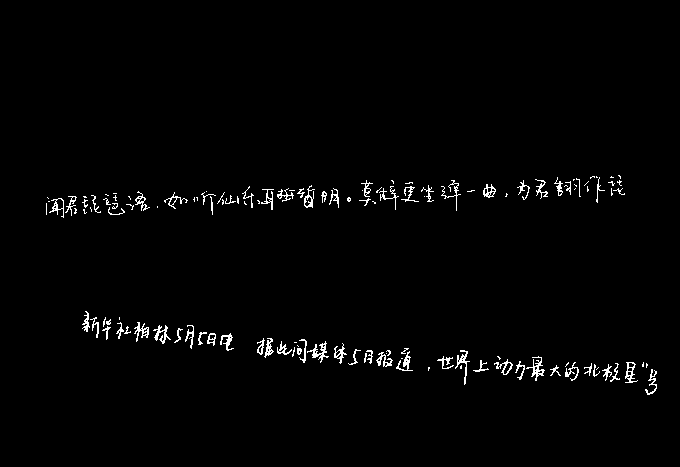 闻君琵琶语，如听仙乐耳暂明。莫辞更坐弹一曲，为君翻作琵
新华社柏林5月5日电 据此间媒体5月报道，世界上动力最大的北极星"号